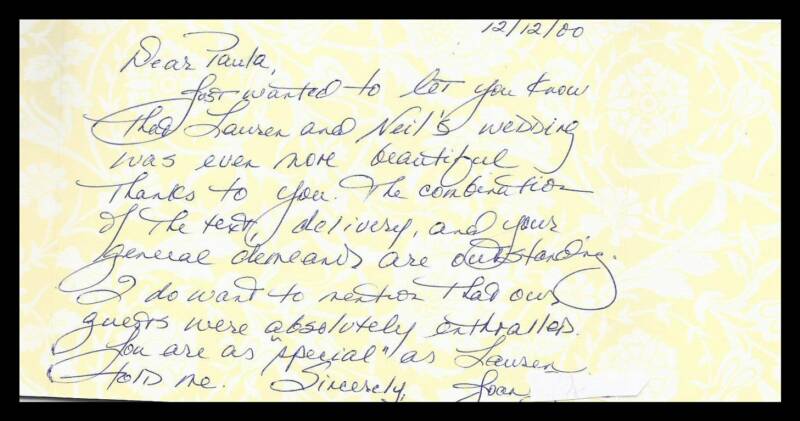 12/12/00
Dear Paula,
Just wanted to let you know
that Lauren and Neil's wedding
was even more beautiful
thanks to you. The combination
of the text, delivery, and your
general demeanor are outstanding.
I do want to mention that our
guests were absolutely enthralled.
You are as "special" as Lauren
told me. Sincerely,
Joan